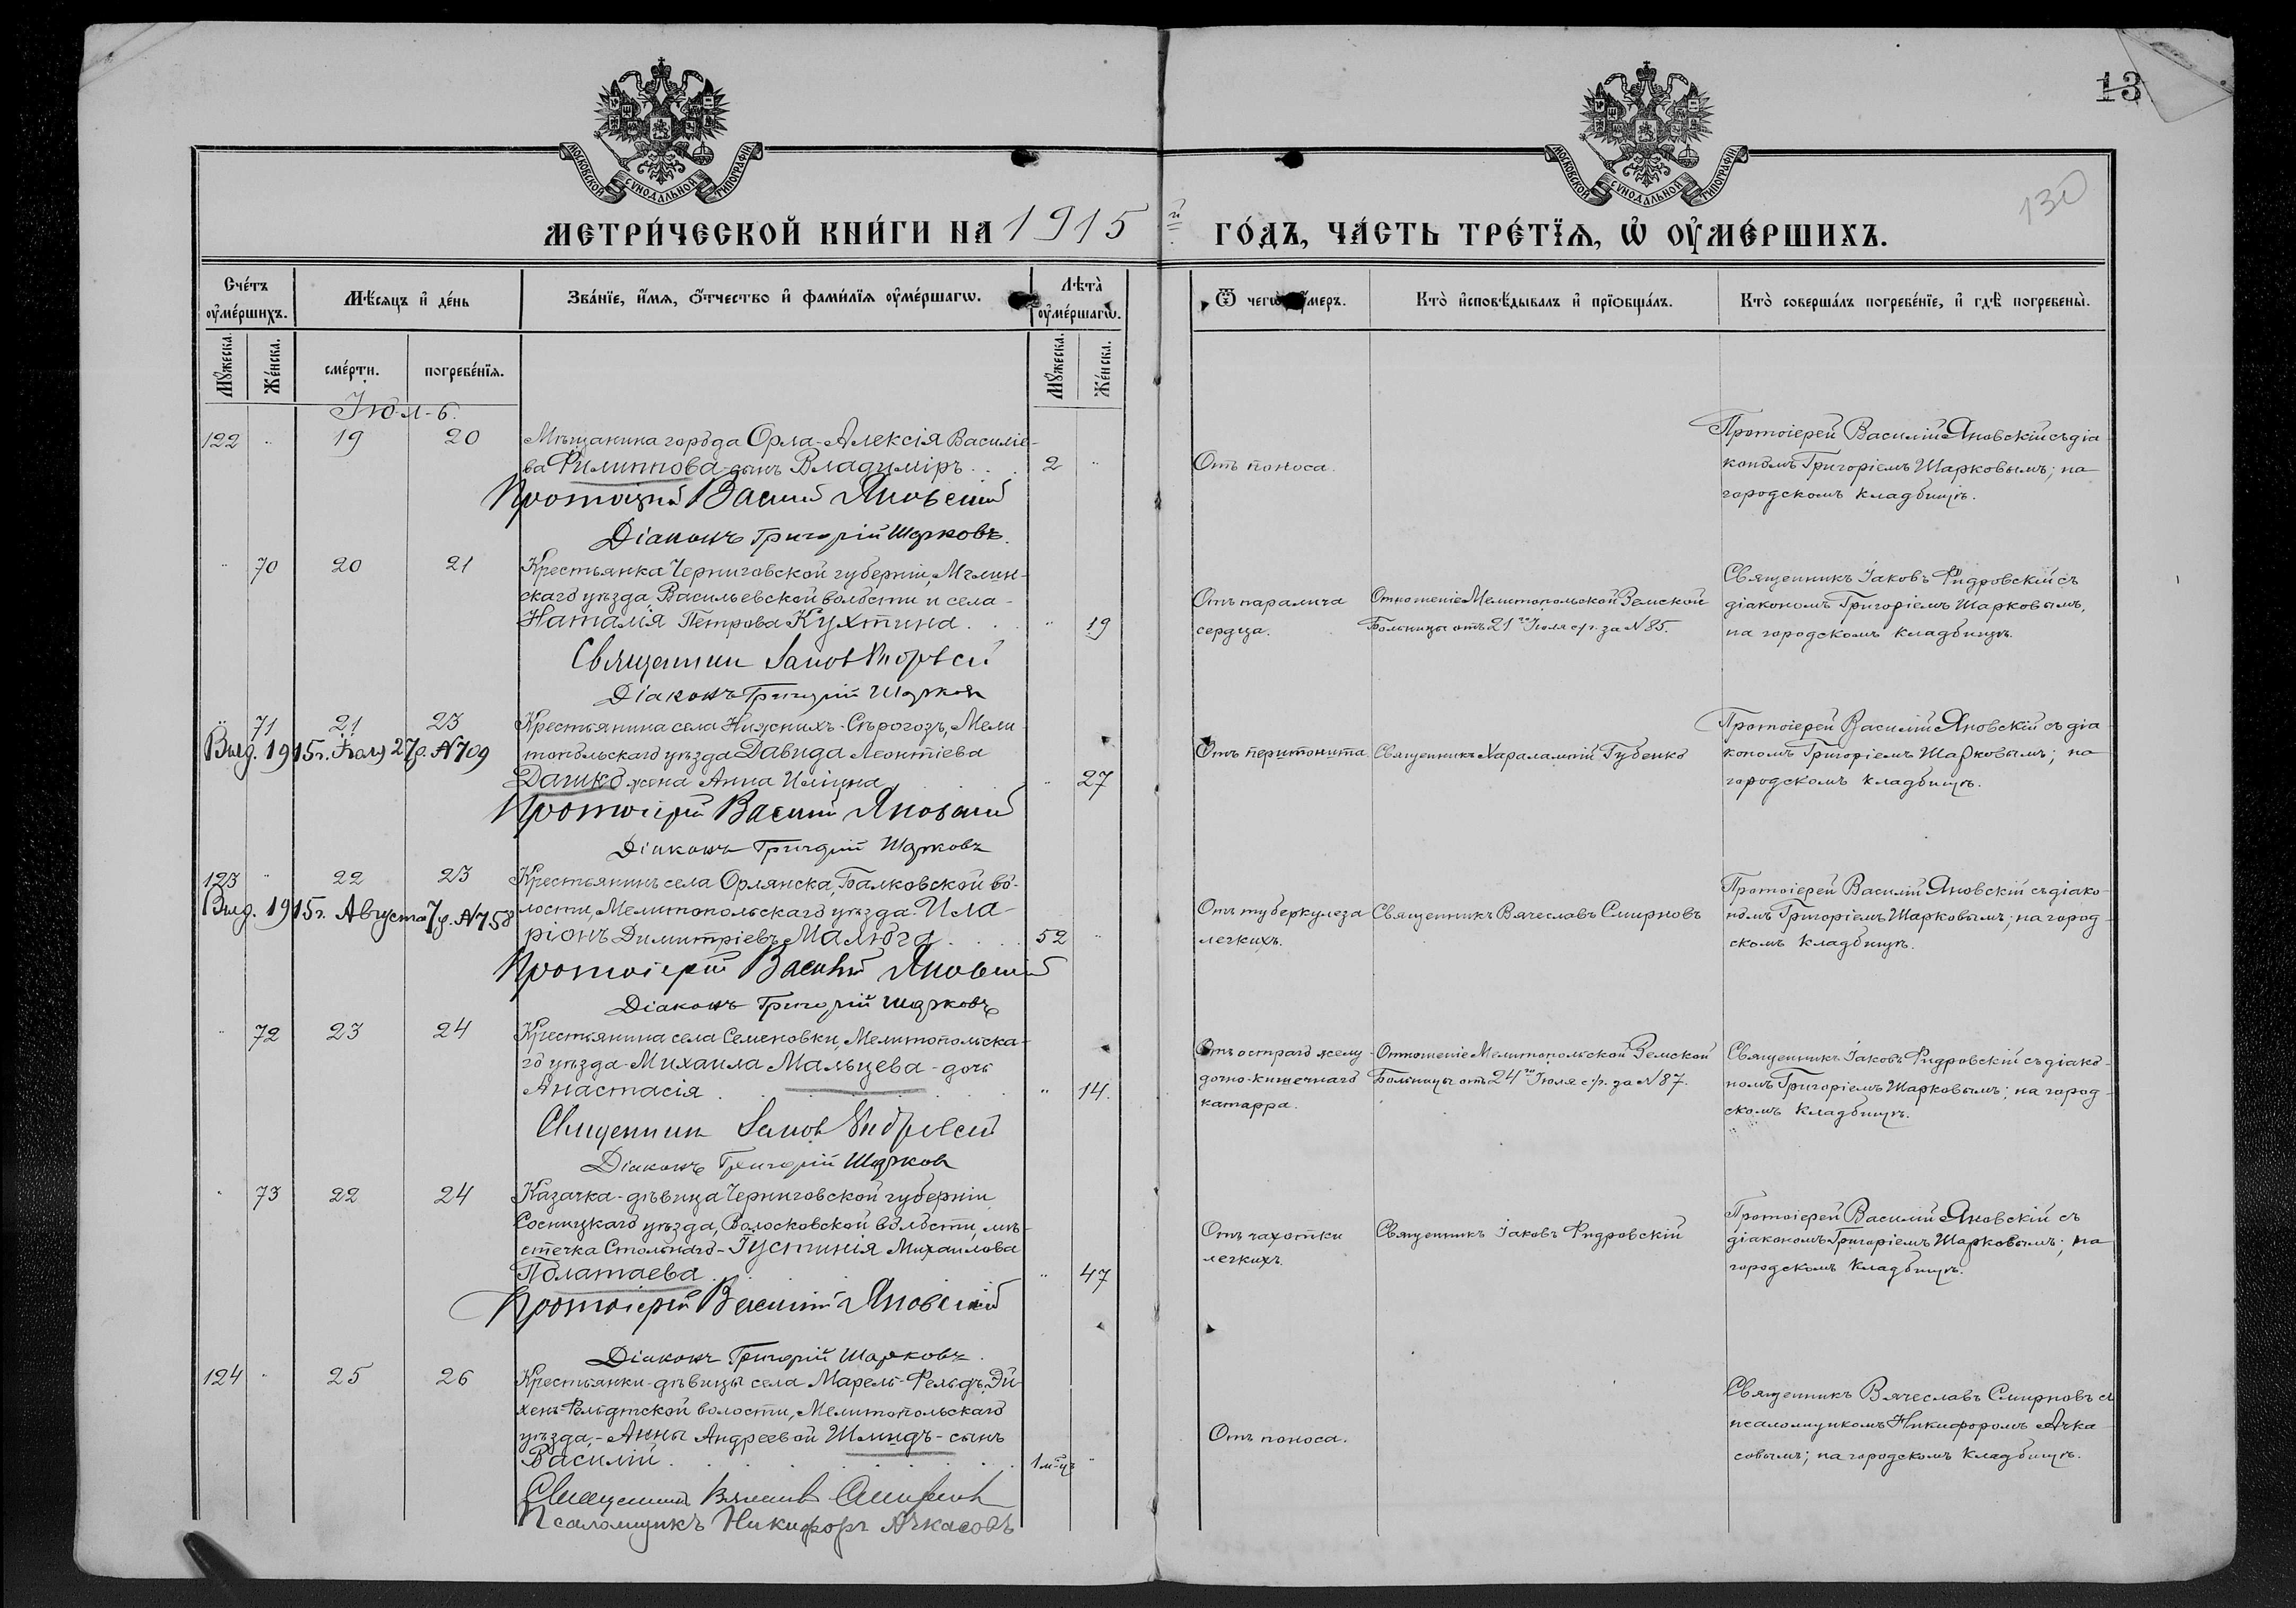 13
130
МОСКОВСКОЙ СѴНОДАЛЬНОЙ ТИПОГРАФІИ
МОСКОВСКОЙ СѴНОДАЛЬНОЙ ТИПОГРАФІИ
МЕТРИ́ЧЕСКОЙ КНИ́ГИ НА 1915й ГО́ДЪ, ЧА́СТЬ ТРЕ́ТЇѦ, Ѡ҆ ОУ҆МЕ́РШИХЪ.
Сче́тъ оу҆ме́ршихъ.
Мѣ́сяцъ и҆ де́нь
Зва́нїе, и҆́мѧ, ѻ҆́тчество и҆ фами́лїѧ оу҆ме́ршагѡ.
Лѣта̀ оу҆ме́ршагѡ.
Ѿ чегѡ̀ оу҆́меръ.
Кто̀ и҆сповѣ́дывалъ и҆ прїѡбща́лъ.
Кто̀ соверша́лъ погребе́нїе, и҆ гдѣ̀ погребены̀.
Мꙋ́жеска.
Же́нска.
сме́рти.
погребе́нїѧ.
Мꙋ́жеска.
Же́нска.
Іюль.
122 " 19 20
Мѣщанина города Орла-Алексія Василіе-
ва Филиппова-сынъ Владиміръ . . . 2 "
Протоіерей Василій Яновскій
Діаконъ Григорій Шарковъ.
Отъ поноса.
Протоіерей Василій Яновскій съ діа
кономъ Григоріемъ Шарковымъ; на
городскомъ кладбищѣ.
" 70 20 21
Крестьянка Черниговской губерніи, Мглин-
скаго уѣзда Васильевской волости и села-
Наталія Петрова Кухтина . . . " 19
Священник Іаков Фидровскій
Діаконъ Григорій Шарков
Отъ паралича
сердца.
Отношеніе Мелитопольской Земской
Больницы отъ 21го Іюля с/г. за №85.
Священникъ Іаковъ Фидровскій съ
діакономъ Григоріемъ Шарковымъ,
на городскомъ кладбищѣ.
" 71 21 23
Выд. 1915г. Іюля 27д. №709
Крестьянина села Нижнихъ-Сѣрогозъ, Мели-
топольскаго уѣзда Давида Леонтіева
жена Анна " 27
Протоіерей Василій Яновскій
Діаконъ Григорій Шарковъ
Отъ перитонита.
Священникъ Харалампій Губенко
Протоіерей Василій Яновскій съ діа
кономъ Григоріемъ Шарковымъ; на
городскомъ кладбищѣ.
123 " 22 23
Выд. 1915г. Августа 7д. №758
Крестьянинъ села Орлянска, Балковской во-
лости, Мелитопольскаго уѣзда. Ила-
ріонъ Димитріевъ Малюга . . . . 52 "
Протоіерей Василій Яновскій
Діаконъ Григорій Шарковъ
Отъ туберкулеза
легкихъ.
Священникъ Вячеславъ Смирновъ
Протоіерей Василій Яновскій съ діако-
номъ Григоріемъ Шарковымъ; на город-
скомъ кладбищѣ.
" 72 23 24
Крестьянина села Семеновки, Мелитопольска-
го уѣзда-Михаила Мальцева-дочь
Анастасія . . . . . " 14.
Священник Іаков Фидровскій
Діаконъ Григорій Шарков
Отъ остраго желу-
дочно-кишечнаго
катарра.
Отношеніе Мелитопольской Земской
Больницы отъ 24го Іюля с/г. за №87.
Священникъ Іаковъ Фидровскій съ діако-
номъ Григоріемъ Шарковымъ; на город-
скомъ кладбищѣ.
" 73 22 24
Казачка-дѣвица Черниговской губерніи
Сосницкаго уѣзда, Волосковской волости, мѣ-
стечка Стольнаго-Іустинія Михаилова
Полатаева . . . . " 47
Протоіерей Василій Яновскій
Діаконъ Григорій Шарковъ.
Отъ чахотки
легкихъ.
Священникъ Іаковъ Фидровскій
Протоіерей Василій Яновскій съ
діакономъ Григоріемъ Шарковымъ; на
городскомъ кладбищѣ.
124 " 25 26
Крестьянки-дѣвицы села Марель-Фельдъ, Эй-
хен-Фельдтской волости, Мелитопольскаго
уѣзда,-Анны Андреевой Шмидъ-сынъ
Василій . . . . . . 1 м-цъ "
Священникъ Вячеслав Смирнов
Псаломщикъ Никифоръ Ачкасовъ
Отъ поноса.
Священникъ Вячеславъ Смирновъ съ
псаломщикомъ Никифоромъ Ачка-
совымъ; на городскомъ кладбищѣ.